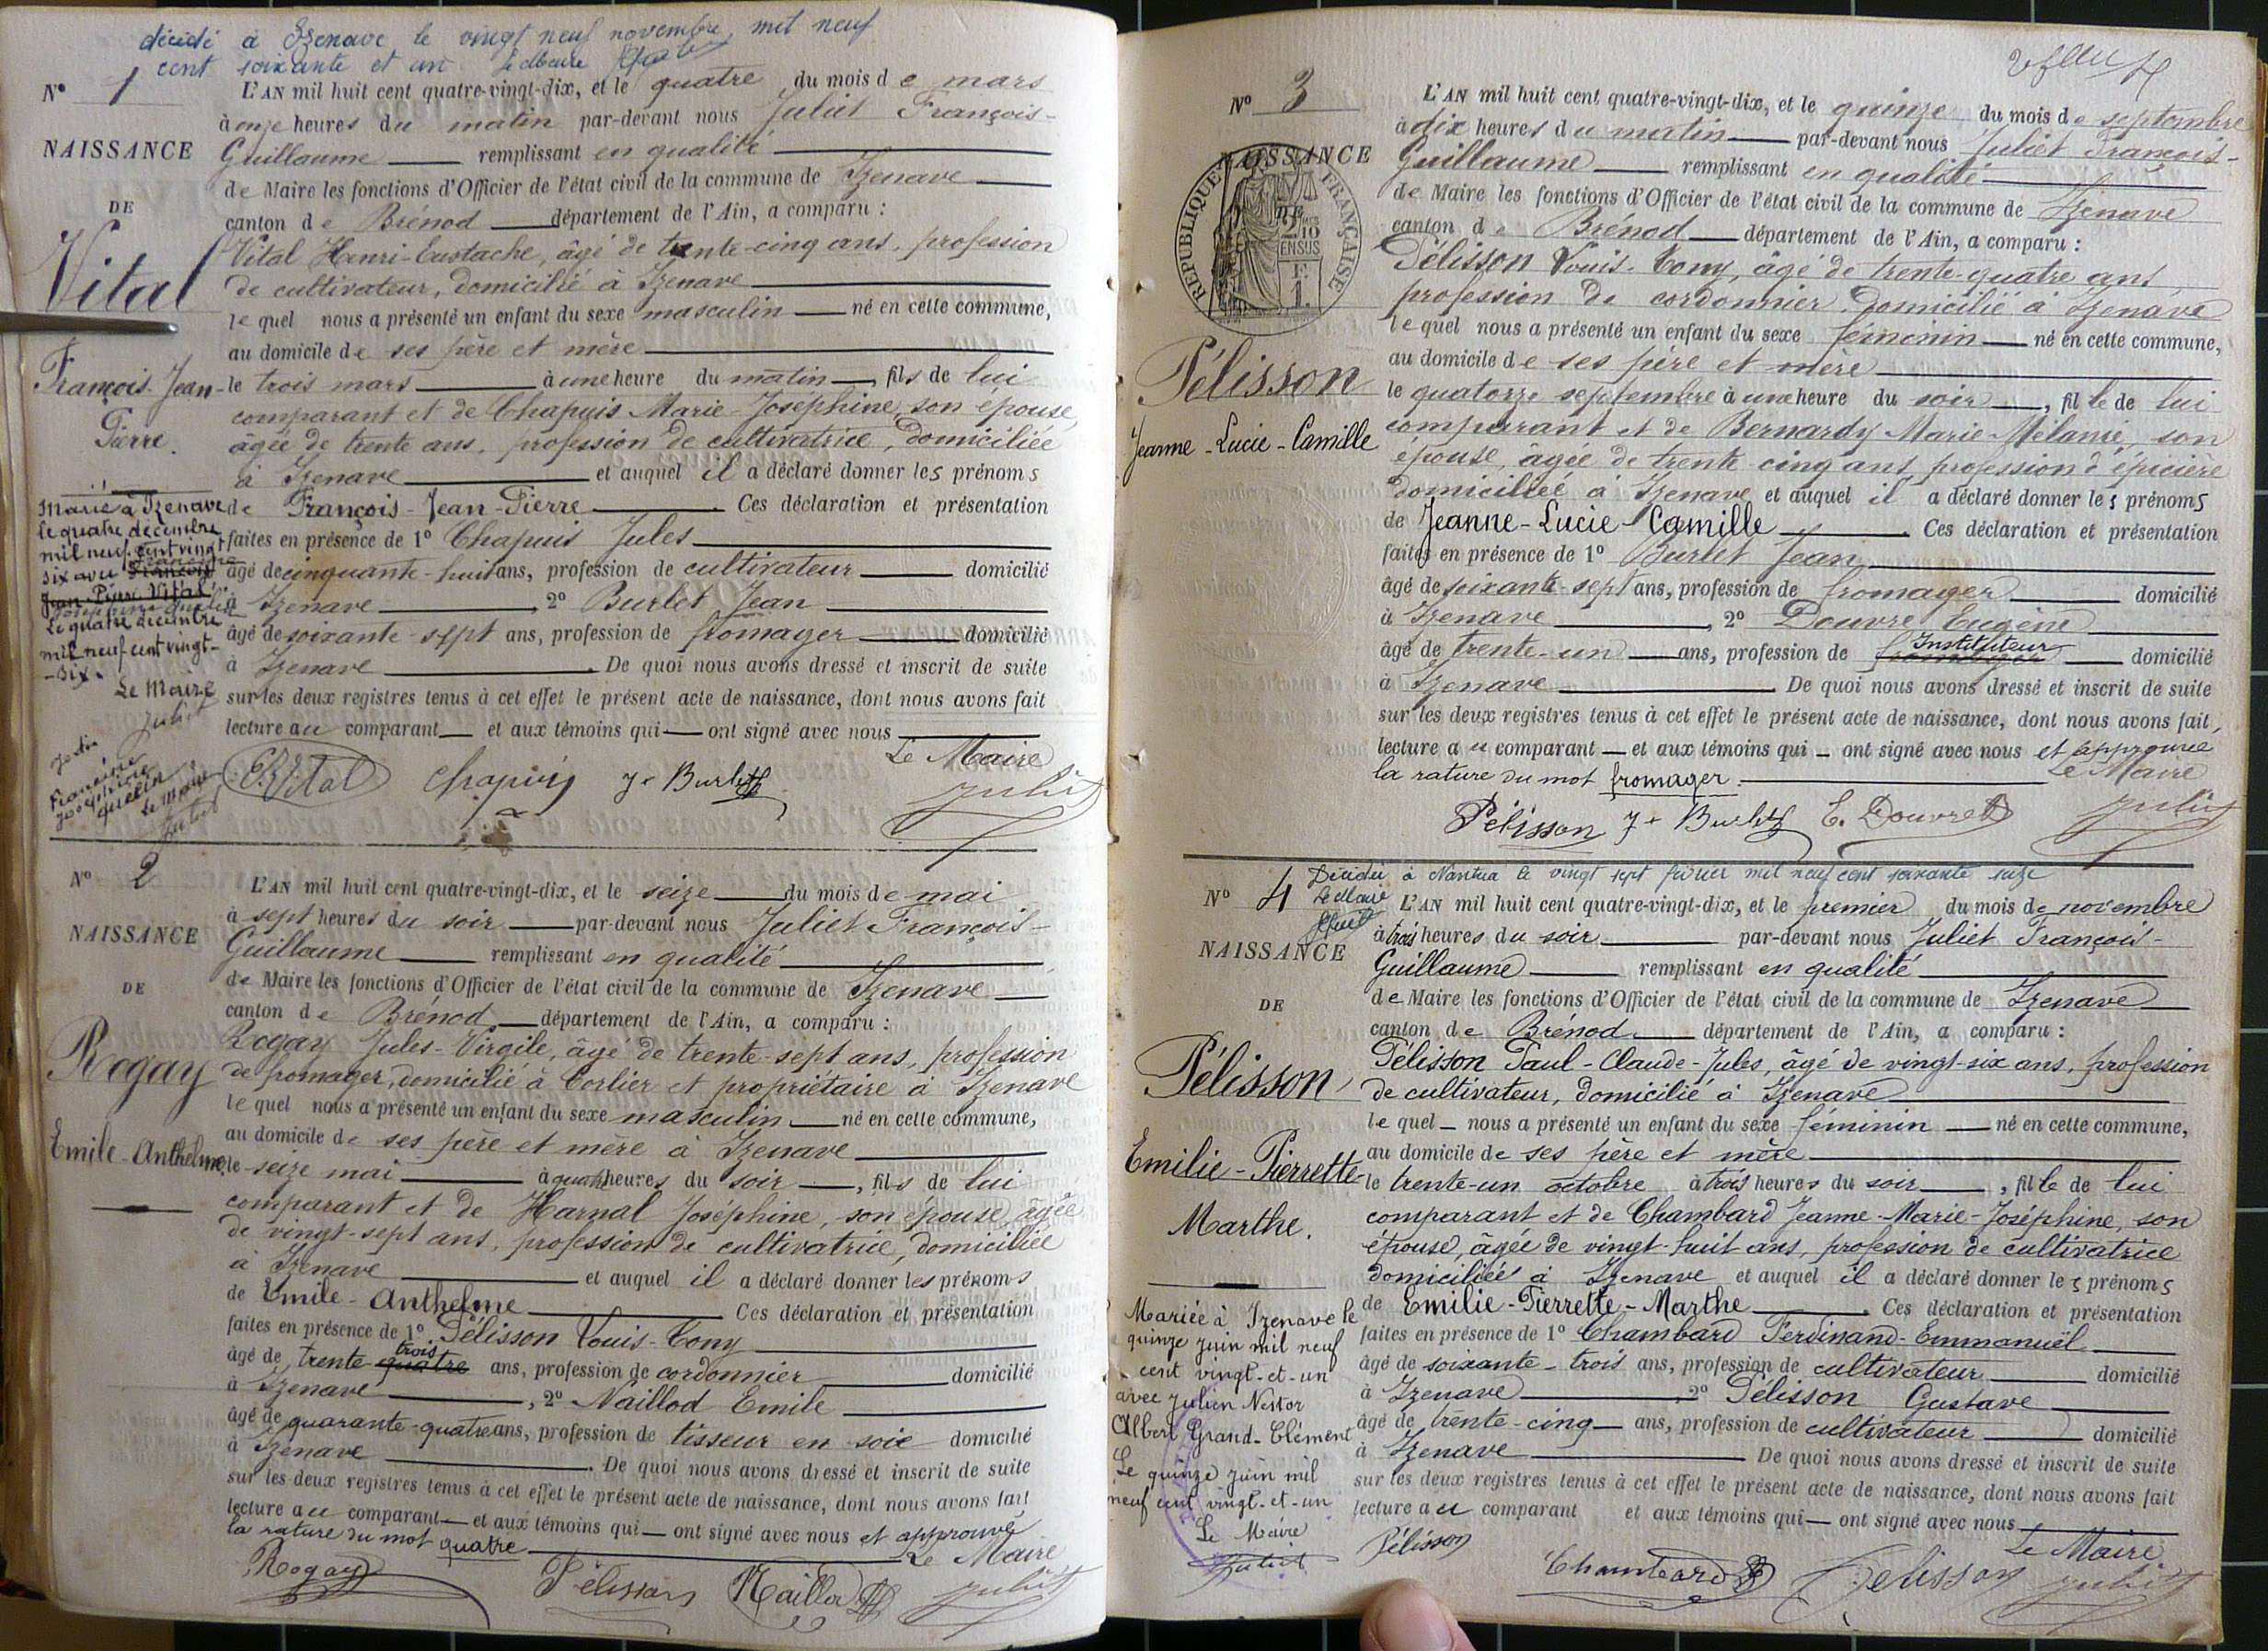 décédé à Izenave le vingt neuf novembre mil neuf
cent soixante et un le Maire
Nº 1
NAISSANCE
DE
Vital
François-Jean-
Pierre.
Marié à Izenave
le quatre décembre
mil neuf cent vingt
six avec François
Jean Pierre Vital
le quatre décembre
mil neuf cent vingt-
-six.
Le Maire
Juliet
Francine
Joséphine
Le Maire
Juliet
L'AN mil huit cent quatre-vingt-dix, et le quatre du mois de mars
à onze heures du matin par-devant nous Juliet François-
Guillaume remplissant en qualité
de Maire les fonctions d'Officier de l'état civil de la commune de Izenave
canton de Brénod département de l'Ain, a comparu :
Vital Henri-Eustache, âgé de trente-cinq ans, profession
de cultivateur, domicilié à Izenave
lequel nous a présenté un enfant du sexe masculin né en cette commune,
au domicile de ses père et mère
le trois mars à une heure du matin, fils de lui
comparant et de Chapuis Marie-Joséphine, son épouse,
âgée de trente ans, profession de cultivatrice, domiciliée
à Izenave et auquel il a déclaré donner les prénoms
de François-Jean-Pierre. Ces déclaration et présentation
faites en présence de 1º Chapuis Jules
âgé de cinquante-huit ans, profession de cultivateur domicilié
à Izenave 2º Burlet Jean
âgé de soixante-sept ans, profession de fromager domicilié
à Izenave. De quoi nous avons dressé et inscrit de suite
sur les deux registres tenus à cet effet le présent acte de naissance, dont nous avons fait
lecture au comparant et aux témoins qui ont signé avec nous
Le Maire
E. Vital Chapuis Je Burlet Juliet
Nº 2
NAISSANCE
DE
Rogay
Emile-Anthelme
L'AN mil huit cent quatre-vingt-dix, et le seize du mois de mai
à sept heures du soir par-devant nous Juliet François-
Guillaume remplissant en qualité
de Maire les fonctions d'Officier de l'état civil de la commune de Izenave
canton de Brénod département de l'Ain, a comparu :
Rogay Jules-Virgile, âgé de trente-sept ans, profession
de fromager, domicilié à Corlier et propriétaire à Izenave
lequel nous a présenté un enfant du sexe masculin né en cette commune,
au domicile de ses père et mère à Izenave
le seize mai à quatre heures du soir, fils de lui
comparant et de Harnal Joséphine, son épouse âgée
de vingt-sept ans, profession de cultivatrice, domiciliée
à Izenave et auquel il a déclaré donner les prénoms
de Emile-Anthelme Ces déclaration et présentation
faites en présence de 1º Pélisson Louis-Tony
âgé de trente quatre trois ans, profession de cordonnier domicilié
à Izenave, 2º Naillod Emile
âgé de quarante-quatre ans, profession de tisseur en soie domicilié
à Izenave. De quoi nous avons dressé et inscrit de suite
sur les deux registres tenus à cet effet le présent acte de naissance, dont nous avons fait
lecture au comparant et aux témoins qui ont signé avec nous et approuvé
la rature du mot quatre Le Maire
Rogay Pélisson Naillod Juliet
Nº 3
NAISSANCE
DE
REPUBLIQUE FRANÇAISE
2/10
EN SUS
F
1.
Pélisson
Jeanne-Lucie-Camille
L'AN mil huit cent quatre-vingt-dix, et le quinze du mois de septembre
à dix heures du matin par-devant nous Juliet François-
Guillaume remplissant en qualité
de Maire les fonctions d'Officier de l'état civil de la commune de Izenave
canton de Brénod département de l'Ain, a comparu :
Pélisson Louis-Tony, âgé de trente-quatre ans
profession de cordonnier domicilié à Izenave
lequel nous a présenté un enfant du sexe féminin né en cette commune,
au domicile de ses père et mère
le quatorze septembre à une heure du soir, fille de lui
comparant et de Bernardy Marie-Mélanie, son
épouse, âgée de trente-cinq ans profession d'épicière
domiciliée à Izenave et auquel il a déclaré donner les prénoms
de Jeanne-Lucie-Camille. Ces déclaration et présentation
faites en présence de 1º Burlet Jean
âgé de soixante-sept ans, profession de fromager domicilié
à Izenave, 2º Douvre Eugène
âgé de trente-un ans, profession de fromager Instituteur domicilié
à Izenave. De quoi nous avons dressé et inscrit de suite
sur les deux registres tenus à cet effet le présent acte de naissance, dont nous avons fait,
lecture au comparant et aux témoins qui ont signé avec nous et approuvé
la rature du mot fromager. Le Maire
Pélisson Je Burlet E. Douvre Juliet
Décédée à Nantua le vingt sept février mil neuf cent soixante seize
Le Maire
Nº 4
NAISSANCE
DE
Pélisson
Emilie-Pierrette-
Marthe.
Mariée à Izenave le
quinze juin mil neuf
cent vingt-et-un
avec Julien Nestor
Albert Grand-Clément
Le quinze juin mil
neuf cent vingt-et-un
Le Maire
Juliet
L'AN mil huit cent quatre-vingt-dix, et le premier du mois de novembre
à trois heures du soir par-devant nous Juliet François-
Guillaume remplissant en qualité
de Maire les fonctions d'Officier de l'état civil de la commune de Izenave
canton de Brénod département de l'Ain, a comparu :
Pélisson Paul-Claude-Jules, âgé de vingt-six ans, profession
de cultivateur, domicilié à Izenave
lequel nous a présenté un enfant du sexe féminin né en cette commune,
au domicile de ses père et mère
le trente-un octobre à trois heures du soir, fille de lui
comparant et de Chambard Jeanne-Marie-Joséphine, son
épouse, âgée de vingt-huit ans, profession de cultivatrice
domiciliée à Izenave et auquel il a déclaré donner les prénoms
de Emilie-Pierrette-Marthe. Ces déclaration et présentation
faites en présence de 1º Chambard Ferdinand-Emmanuël
âgé de soixante-trois ans, profession de cultivateur domicilié
à Izenave 2º Pélisson Gustave
âgé de trente-cinq ans, profession de cultivateur domicilié
à Izenave De quoi nous avons dressé et inscrit de suite
sur les deux registres tenus à cet effet le présent acte de naissance, dont nous avons fait
lecture au comparant et aux témoins qui ont signé avec nous
Le Maire
Pélisson Chambard Pelisson Juliet